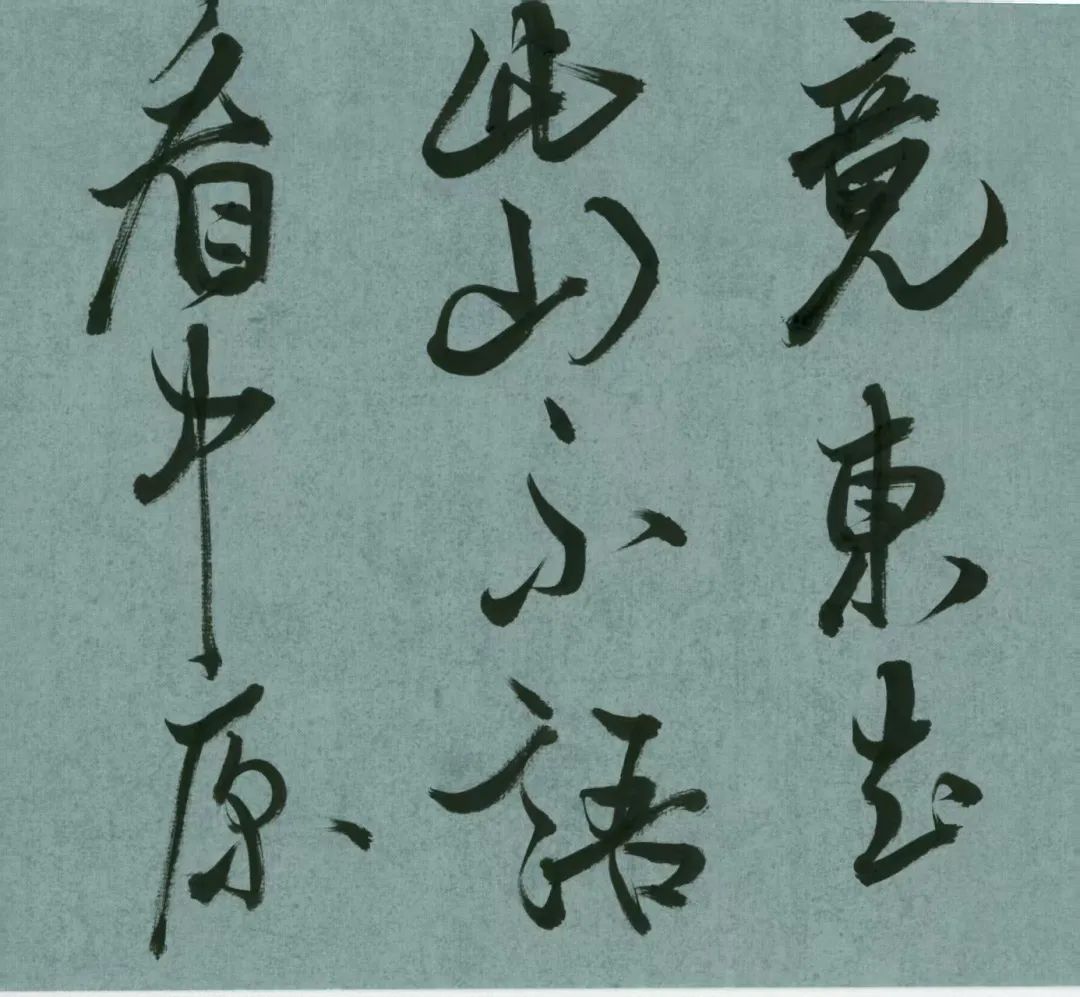 竟東去
此山不語
看中原